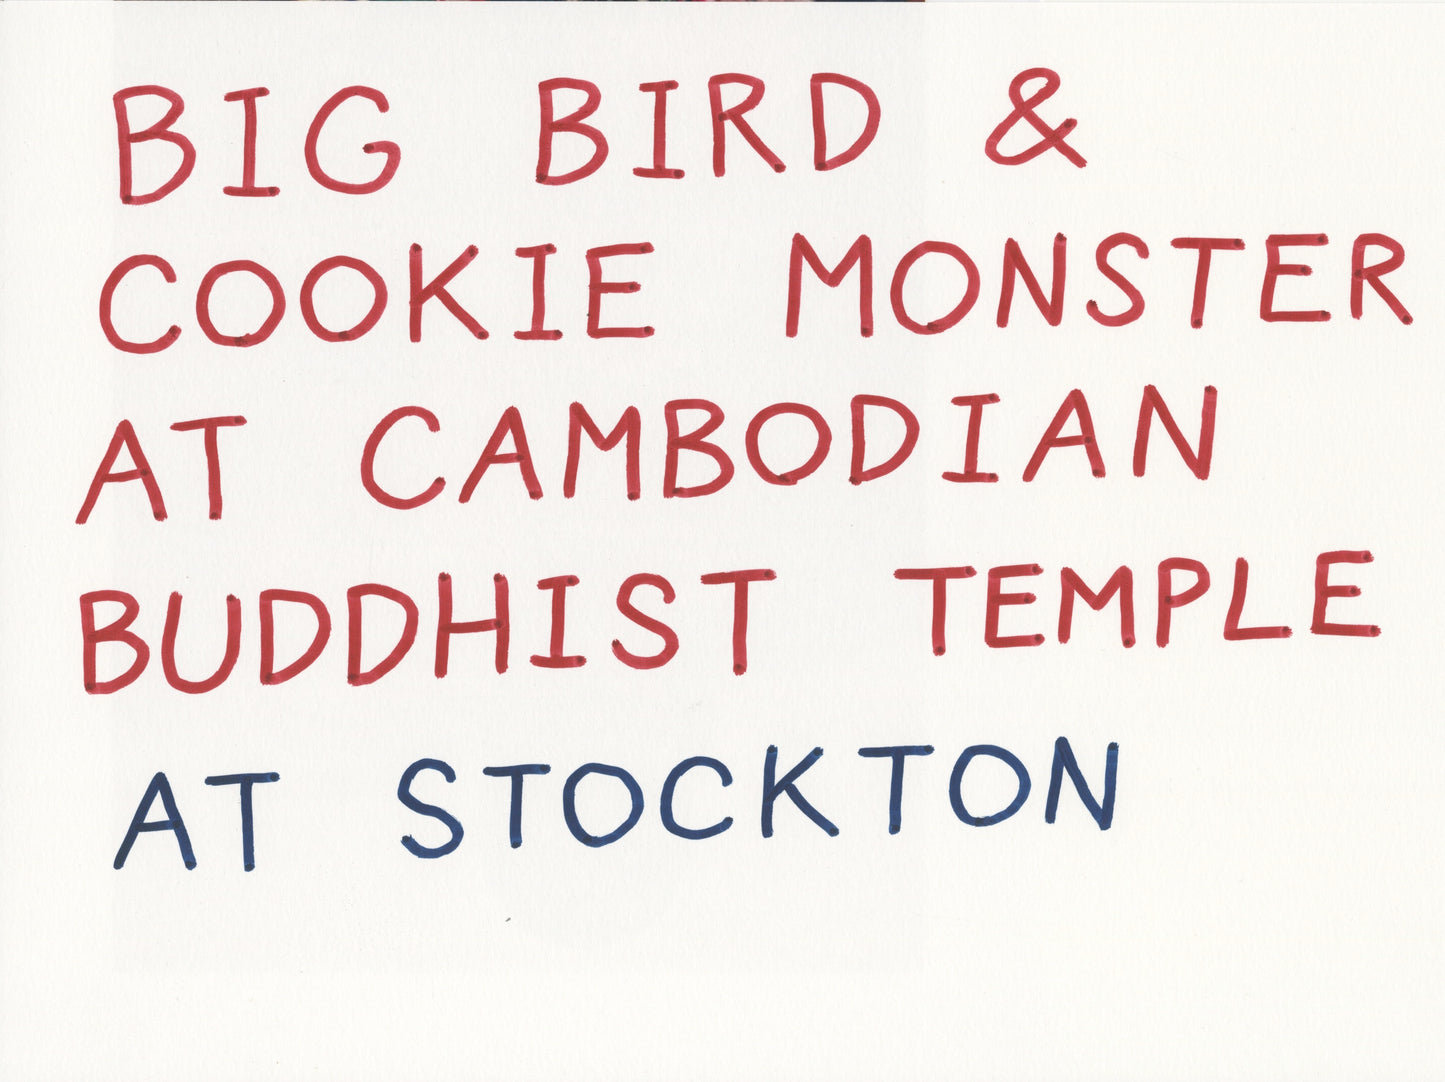 BIG BIRD &
COOKIE MONSTER
AT CAMBODIAN
BUDDHIST TEMPLE
AT STOCKTON